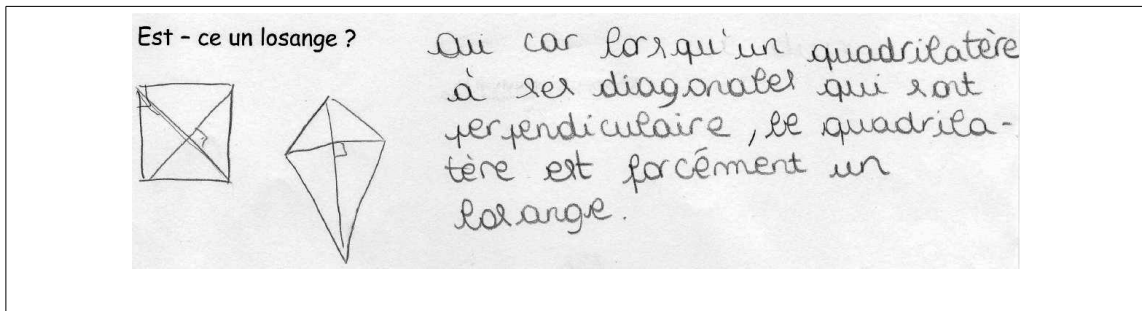 Est - ce un losange ?
Oui car lorsqu'un quadrilatère
à ses diagonales qui sont
perpendiculaire, le quadrila-
tère est forcément un
losange.